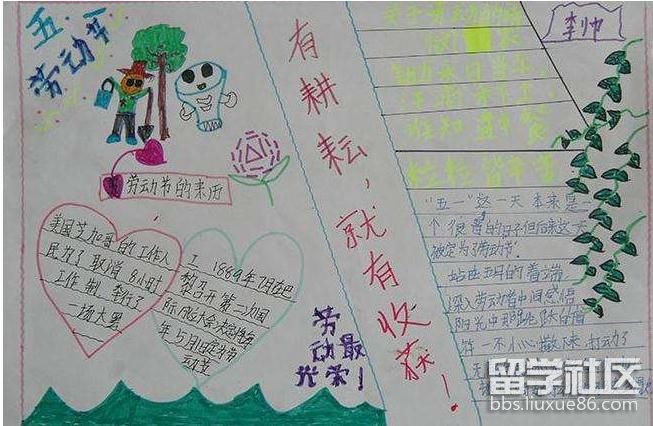 五一
劳动节
劳动节的来历
美国芝加哥的工作人
民为了取消8小时
工作制,举行了
一场大罢
工,1889年7月在巴
黎召开第二次国
际
年5月1日定为劳
动节
有耕耘,就有收获!
劳动最
光荣!
李帅
关于劳动的诗
锄禾日当午,
汗滴禾下土,
谁知盘中餐
粒粒皆辛苦
“五一”这一天本来是一
个很普
被定为了劳动节.
站在五月的着端
深入劳动者中间感悟
阳光中那跳跃的音
符一不小心撒下来打动了
留学社区
bbs.liuxue86.com